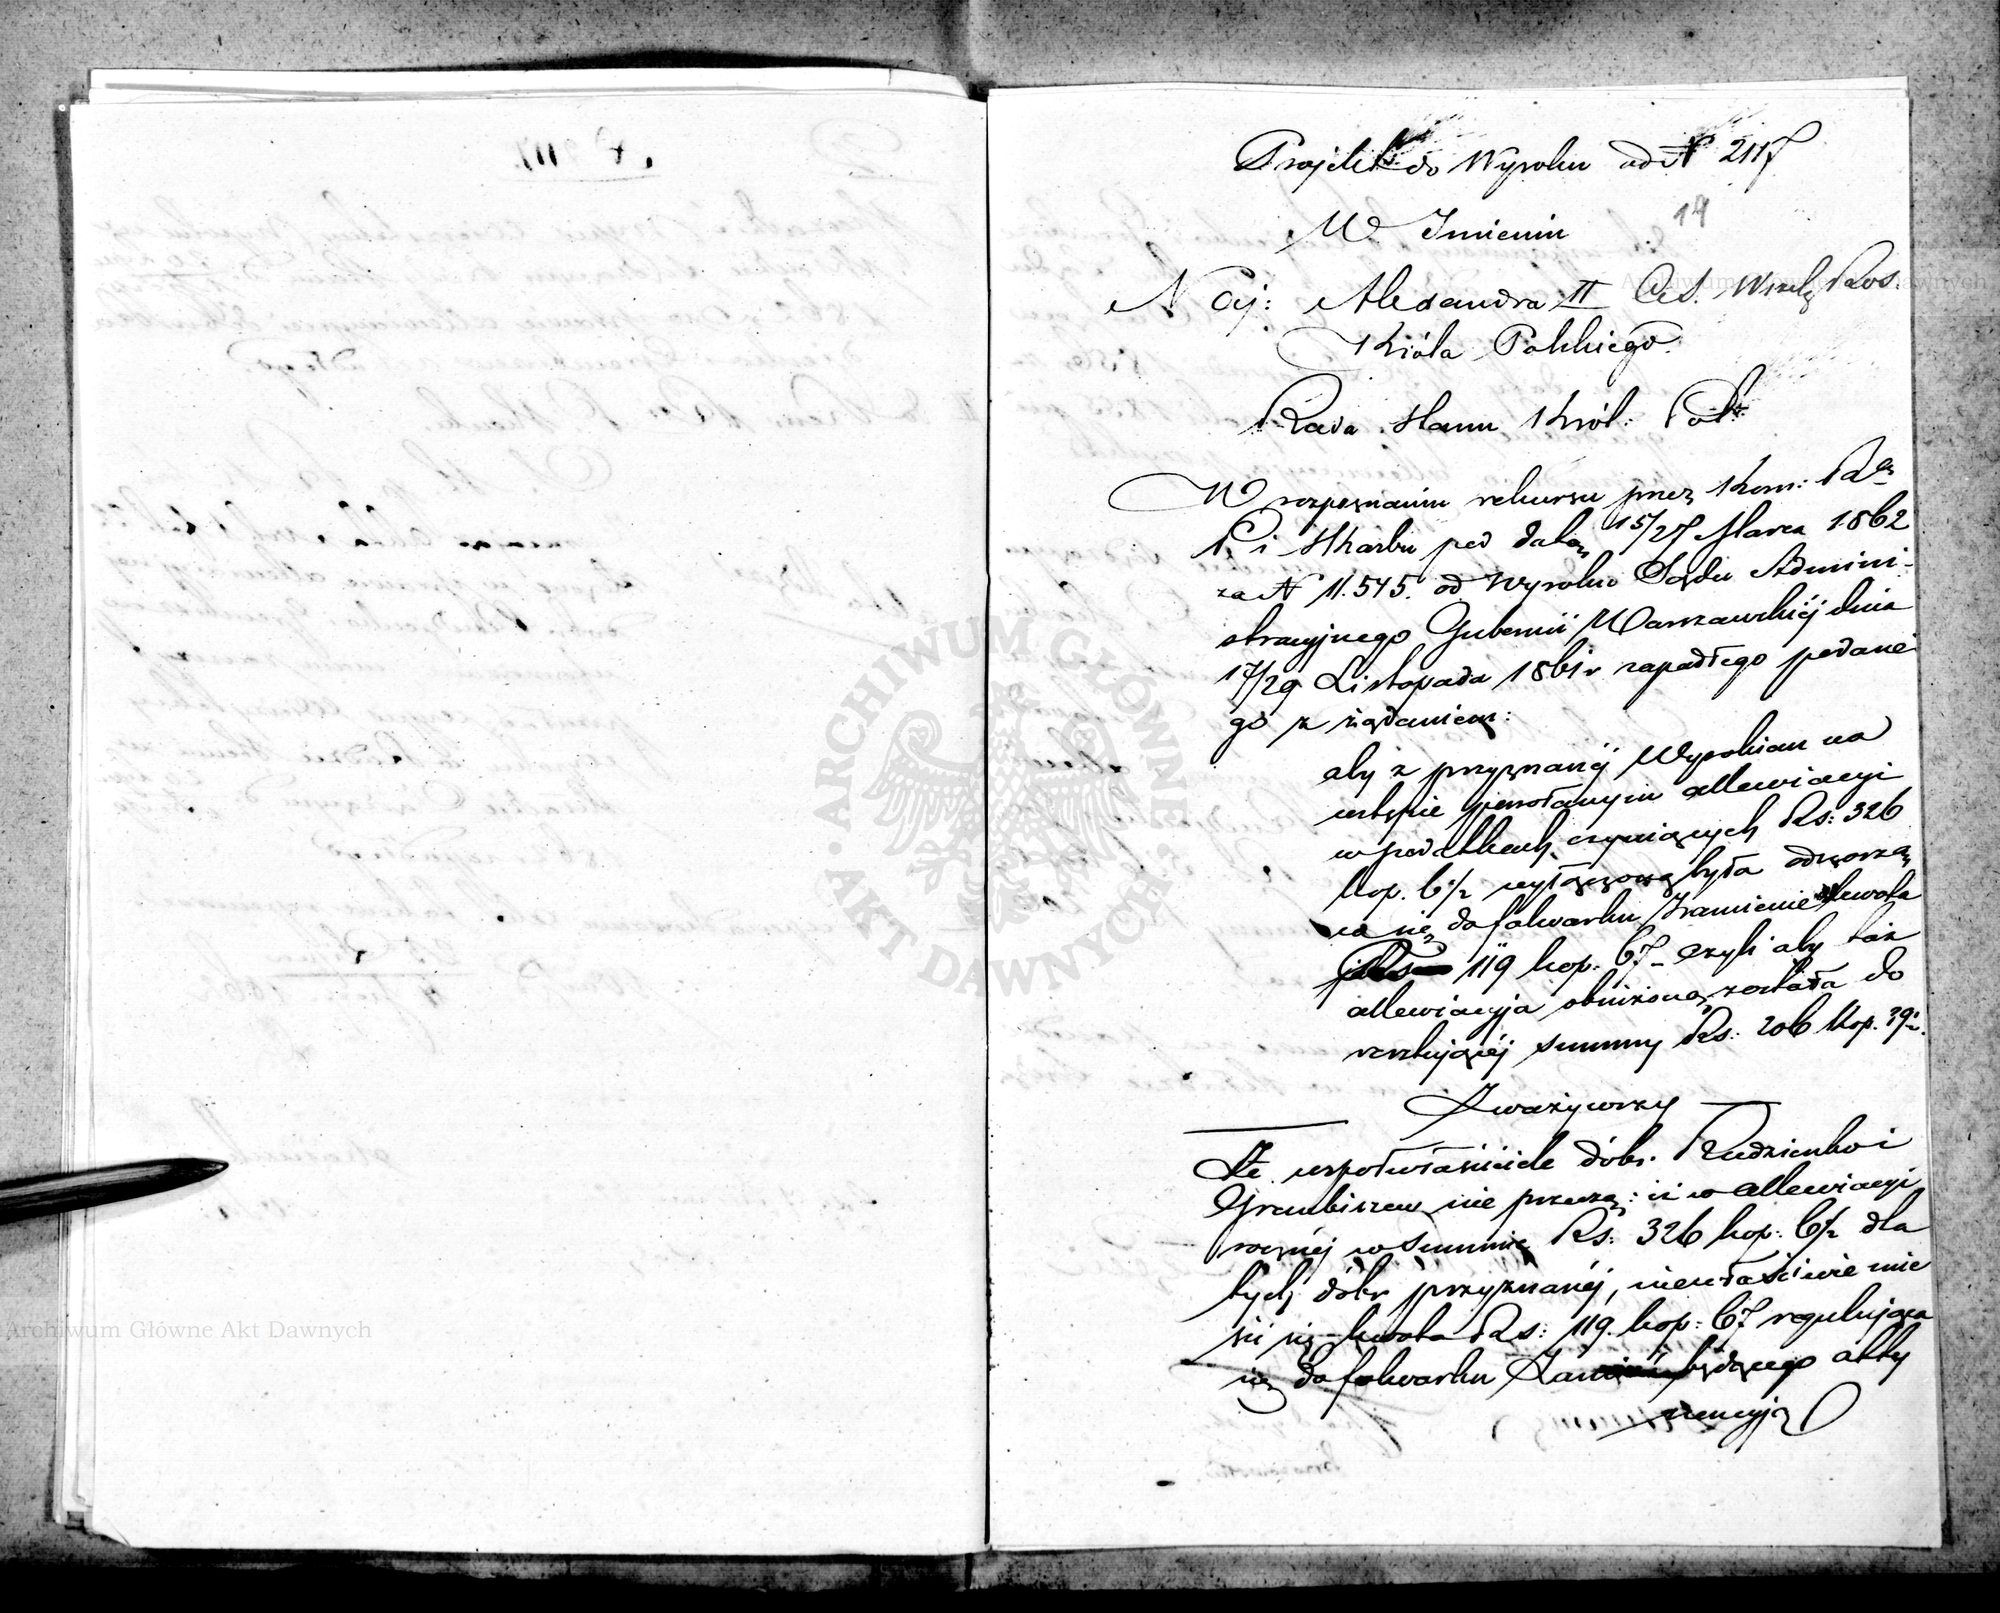 Projekt do Wyroku ad N 2117
14
W Imieniu
Naj: Alexandra II Ces. Wszech Ros.
Króla Polskiego
Rada Stanu Król: Pols:
W rozpoznaniu rekursu przez Kom: Rz
P. i Skarbu pod datą 15/27 Marca 1862
za N 11.545. od Wyroku Sądu Admini-
stracyjnego Gubernii Warszawskiéj dnia
17/29 Listopada 1861 r zapadłego podane
go z żądaniem:
aby z przyznanéj Wyrokiem na
wstępie powołanym allewiacyi
w podatkach, czyniących Rs: 326
kop. 6½ wyłączoną była odnosząca
się do folwarku kwota
Rs 119 kop: 67 czyli aby taż
allewiacyja obniżoną została do
resztującéj summy Rs: 206 kop. 39½.
Zważywszy
Że współwłaściciele dóbr Rudzienko i
Grembiszew nie przeczą: iż w allewiacyi
rocznéj w summie Rs: 326 kop: 6½ dla
tych dóbr przyznanéj, niewłaściwie mie
ści się kwota Rs: 119. kop: 67 regulująca
się do folwarku będącego atty
nencyją
ARCHIWUM GŁÓWNE AKT DAWNYCH
Archiwum Główne Akt Dawnych
Archiwum Główne Akt Dawnych